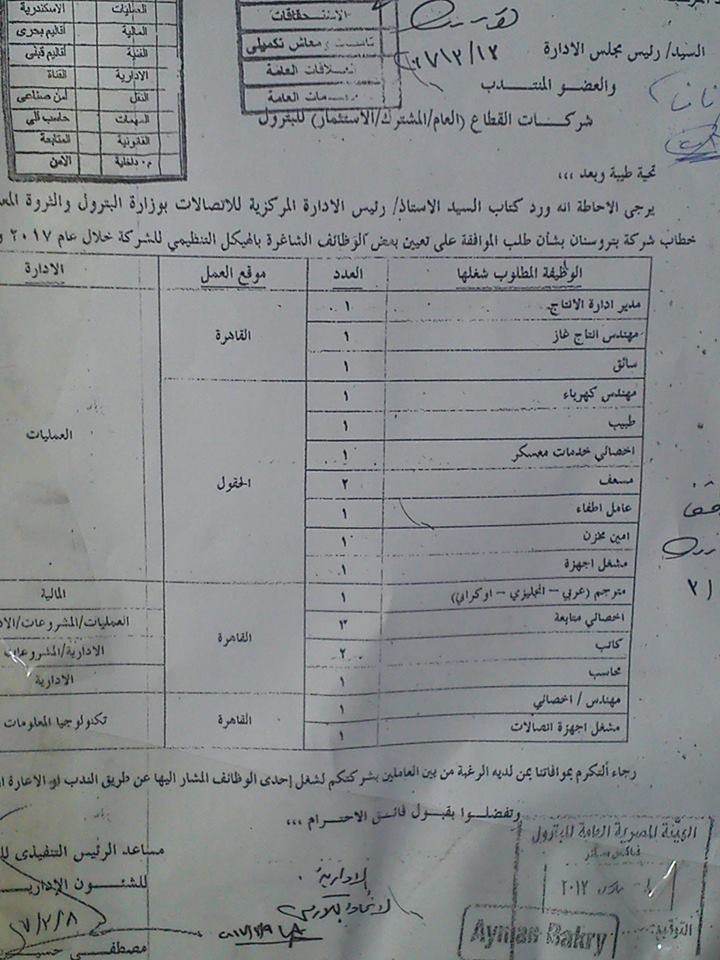 العمليات الاسكندرية
المالية أقاليم بحرى
الفنية أقاليم قبلى
الادارية القناة
النقل أمن صناعى
المهمات حاسب الى
القانونية المتابعة
م٠داخلية الأمن
الاستحقاقات
تأمينات ومعاش تكميلى
العلاقات العامة
العامة
السيد/ رئيس مجلس الادارة
والعضو المنتدب
شركات القطاع (العام/المشترك/الاستثمار) للبترول
تحية طيبة وبعد ،،،
يرجى الاحاطة انه ورد كتاب السيد الاستاذ/ رئيس الادارة المركزية للاتصالات بوزارة البترول والثروة
خطاب شركة بتروسنان بشأن طلب الموافقة على تعيين بعض الوظائف الشاغرة بالهيكل التنظيمي للشركة خلال عام ٢٠١٧
الوظيفة المطلوب شغلها العدد موقع العمل الادارة
مدير ادارة الانتاج ١
مهندس انتاج غاز ١ القاهرة
سائق ١
مهندس كهرباء ١
طبيب ١ العمليات
اخصائي خدمات معسكر ١
مسعف ٢ الحقول
عامل اطفاء ١
امين مخزن ١
مشغل اجهزة ١
مترجم (عربي – انجليزي – اوكراني) ١ المالية
اخصائي متابعة ٣ القاهرة العمليات/المشروعات/
كاتب ٢ الادارية/المشروعات
محاسب ١ الادارية
مهندس / اخصائي ١ القاهرة تكنولوجيا المعلومات
مشغل اجهزة اتصالات ١
رجاء التكرم بموافاتنا بمن لديه الرغبة من بين العاملين بشركتكم لشغل إحدى الوظائف المشار اليها عن طريق الندب او الاعارة
وتفضلوا بقبول فائق الاحترام ،،،
مساعد الرئيس التنفيذى
للشئون الإدارية
مصطفى حسين
الادارية
الهيئة المصرية العامة للبترول
مارس ٢٠١٧
التوقيع:
Ayman Bakry